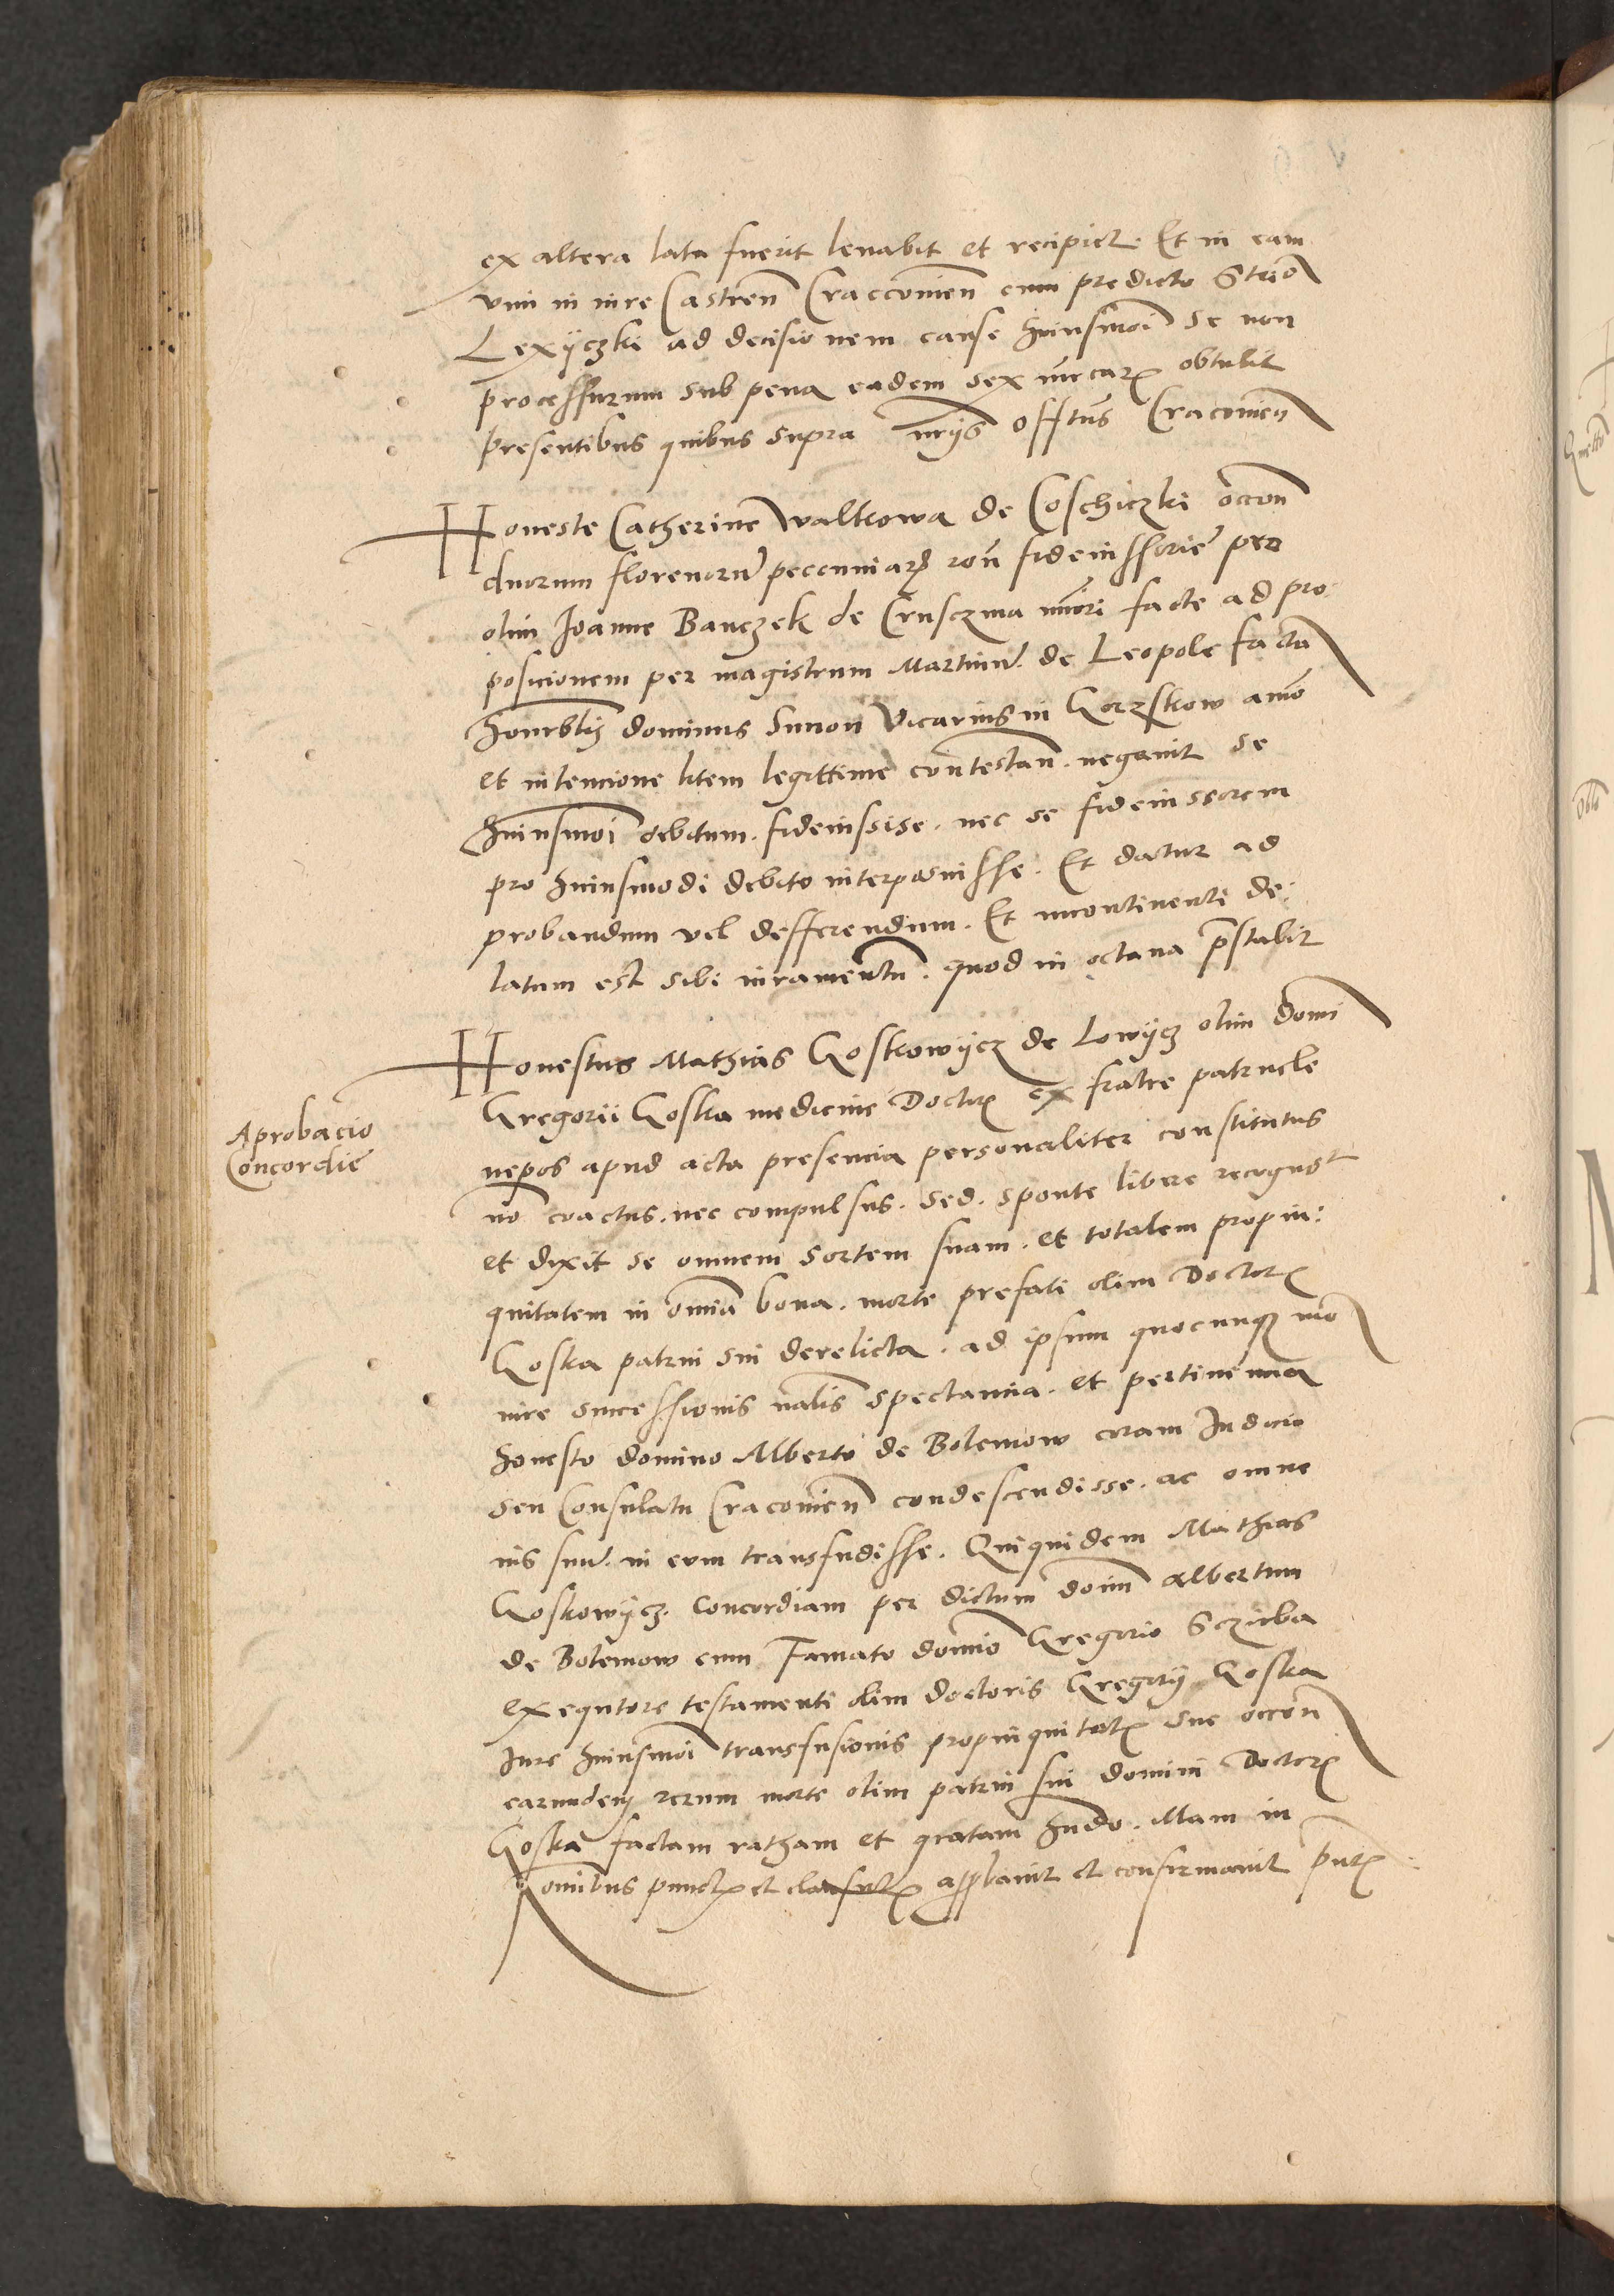 ex altera lata fuerit levabit et recipiet. Et in eam
vim in iure Castren Craccovien cum predicto
Lexyczki ad decisionem cause huiusmoi se non
processurum sub pena eadem sex mrcarum obtulit
presentibus quibus supra nrijs Offtus Cracovien
Honeste Catherine walkowa de Coschiczki occon
duorum florenoru peccuniar ron fideiussorie pro
olim Joanne Banczek de Crusczina facte ad pro
posicionem per magistrum Martinu de Leopole facta
honrblis dominus Simon Vicarius in Gorzkow amo
et intencione litem legittime contestan. negavit se
huiusmoi debitum fideiussise. nec se fideiussorem
pro huiusmodi debito interposuisse. Et datur ad
probandum vel defferendum. Et incontinenti de:
latum est sibi iuramentu. quod in octava prstabit
Honestus Mathias Goskowycz de Lowycz olim domi
Gregorii Goska medicine Doctor ex fratre patruele
Aprobacio
Concordie
nepos apud acta presencia personaliter constitutus
no coactus. nec compulsus. sed. sponte libere recognot
et dixit se omnem sortem suam. et totalem propin:
quitatem in omia bona. morte prefati olim Doctor
Goska patrui sui derelicta. ad ipsum quocunque mo
iure successionis nalis spectancia. et pertinencia
honesto domino Alberto de Bolemow coram Iudicio
seu Consulatu Cracovien condescendisse. ac omne
ius suu. in eum transfudisse. Quiquidem Mathias
Goskowycz. Concordiam per dictum domi albertum
de Bolemow cum Famato domio Gregorio Sczirba
exequtore testamenti olim doctoris Gregorij Goska
Iure huiusmoi transfusionis propinquitat sue occon
earundem rerum morte olim patrui sui domini Doctor
Goska factam ratham et gratam hndo. Illam in
omibus punct et clausul approbavit et confirmavit pnt